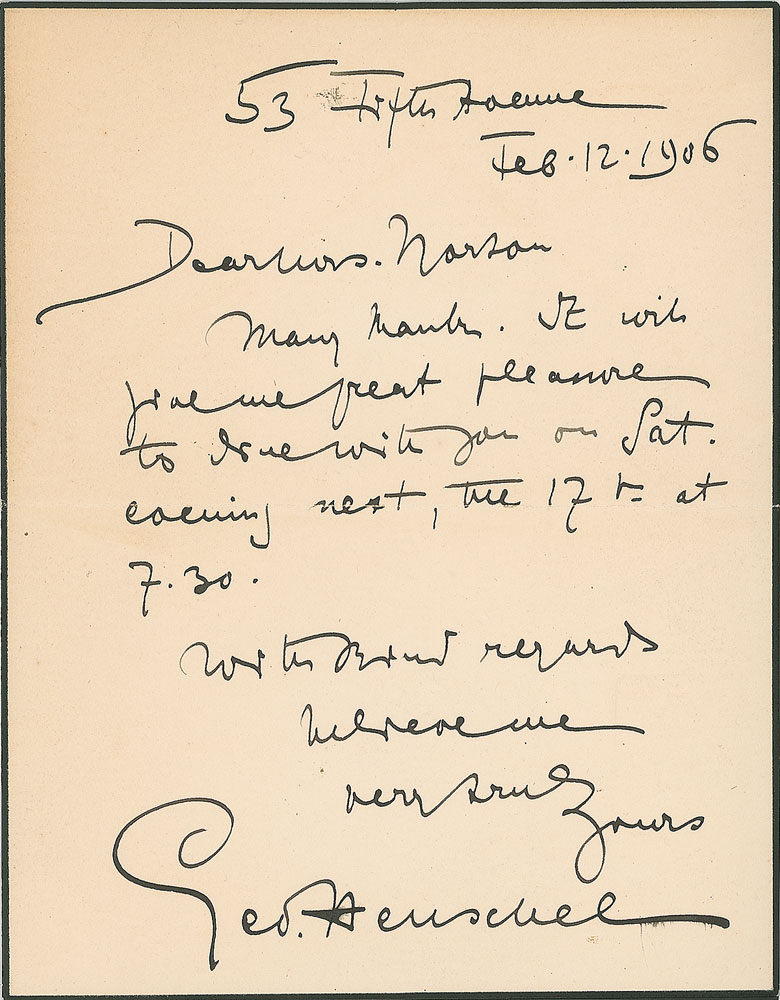 53 Fifth Avenue
Feb. 12. 1906
Dear Mrs. Norton
Many thanks. It will
give me great pleasure
to dine with you on Sat.
evening next, the 17th at
7.30.
With kind regards
believe me
very truly
yours
Geo. Henschel